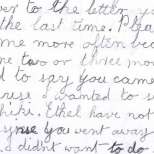 ver to the letter yo
the last time. Plea
me more often bec
ne two or three mon
d to say you came
rese I wanted to s
Ethel have not
you went away
didnt want to do